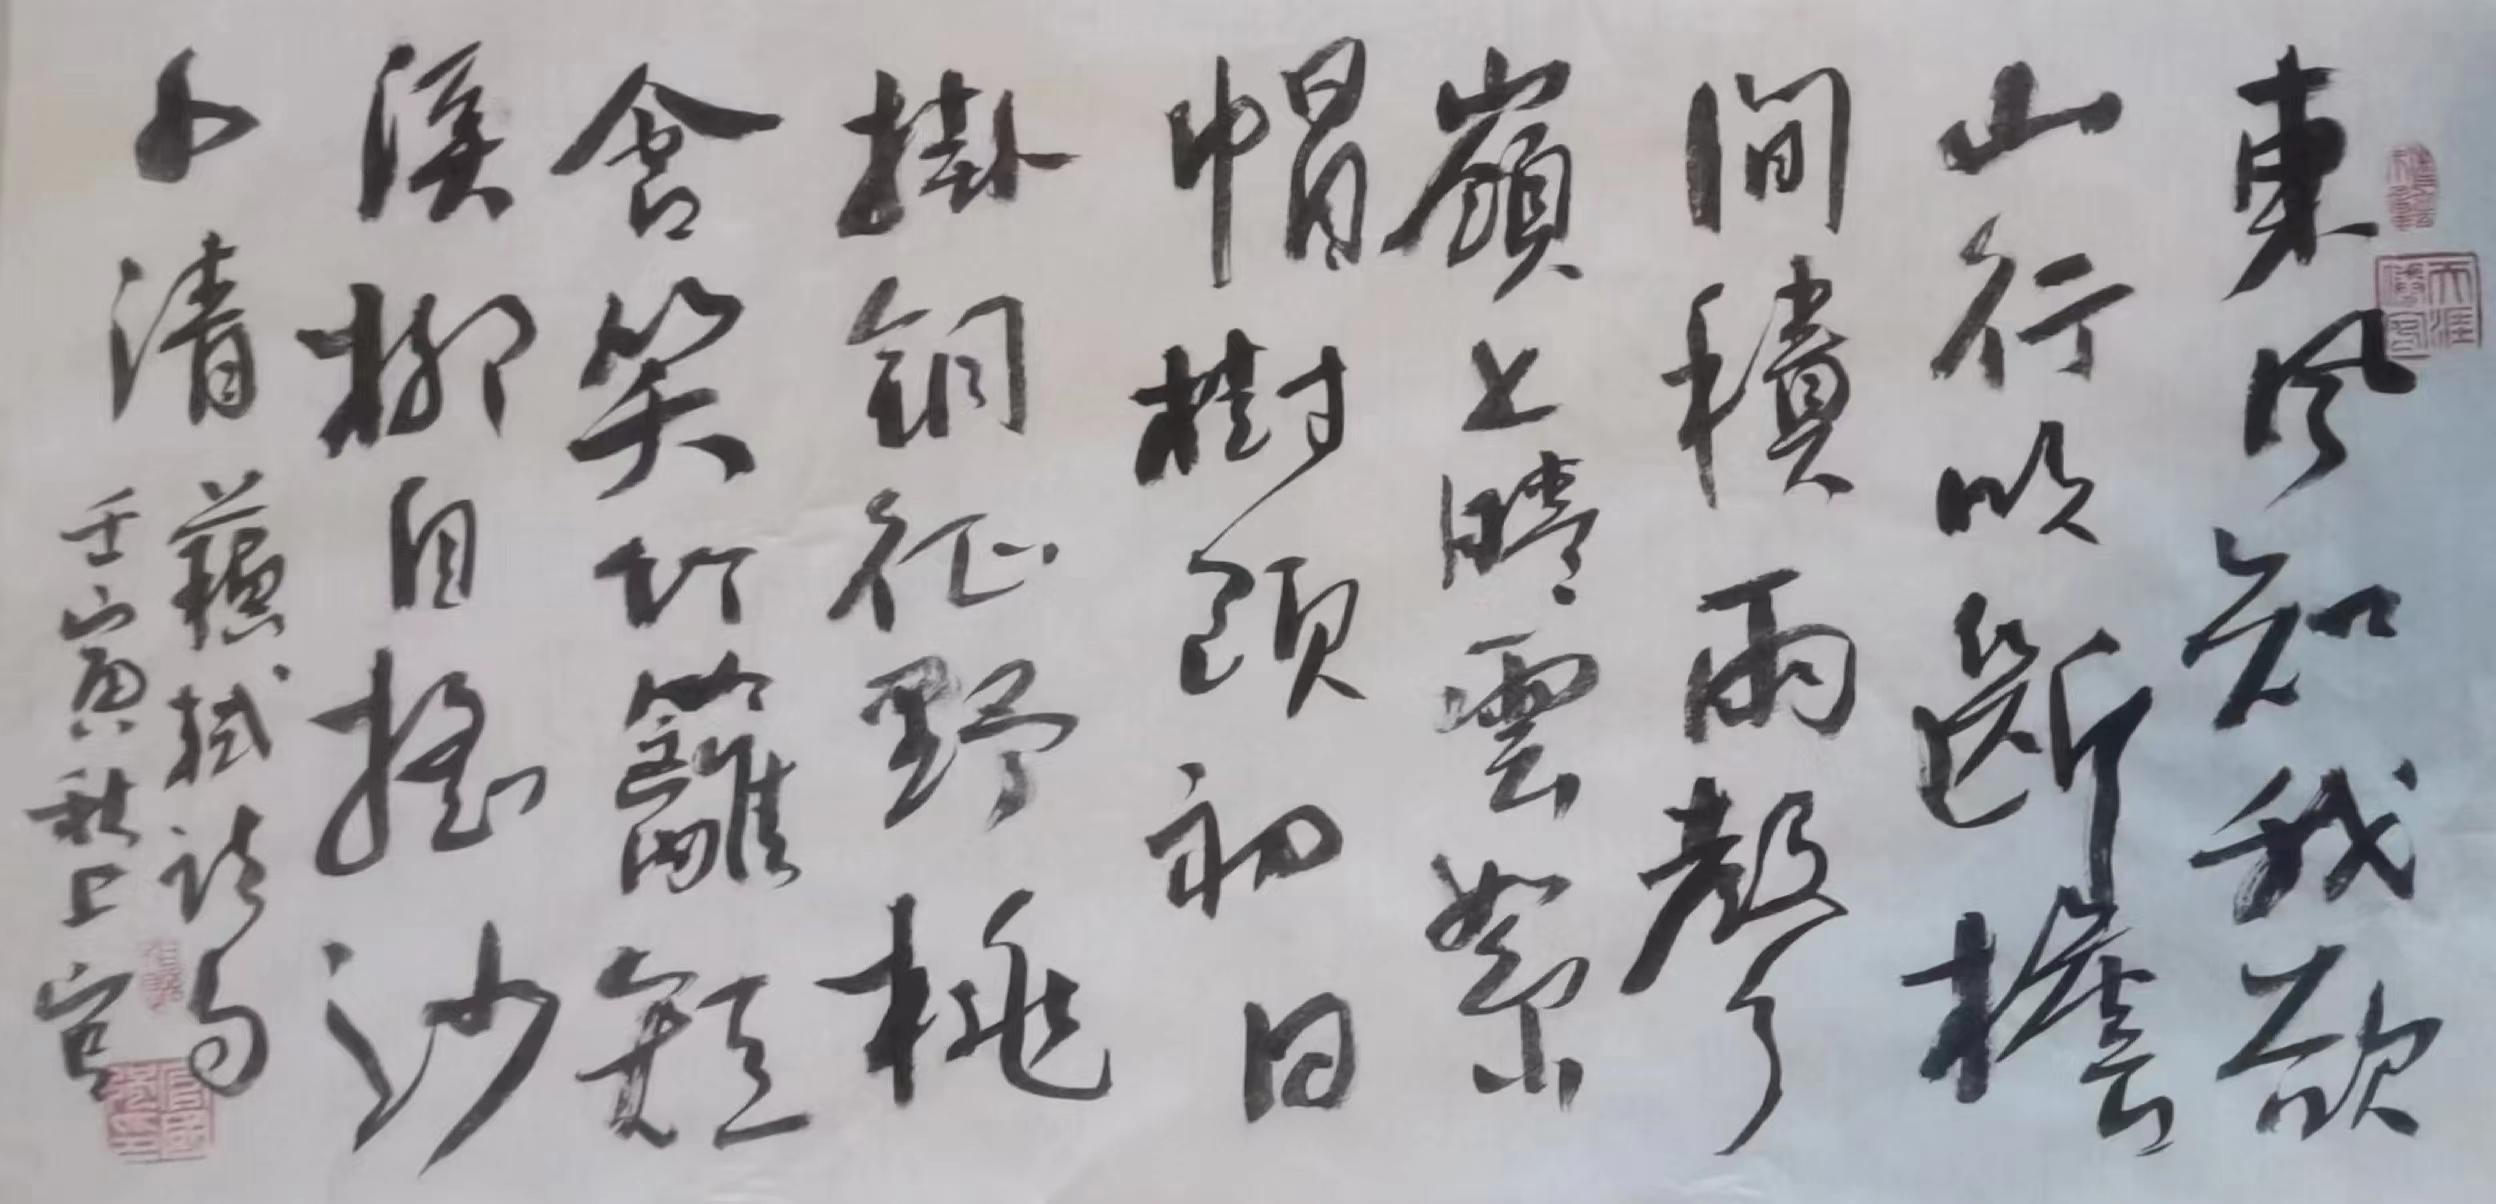 東風知我欲
山行吹斷檐
間積雨聲
嶺上晴雲絮
帽樹頭初日
掛銅征野桃
含笑竹籬短
溪柳自搖沙
水清
蘇軾詩句
壬寅秋上官